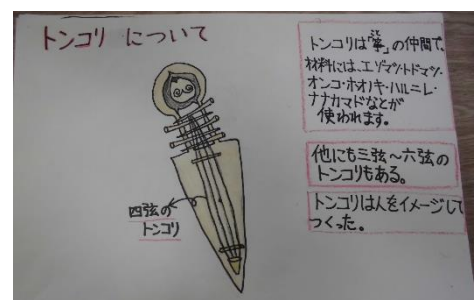 トンコリ について
トンコリは「箏」の仲間で、
材料には、エゾマツ・トドマツ・
オンコ・ホオノキ・ハルニレ・
ナナカマドなどが
使われます。
他にも三弦～六弦の
トンコリもある。
トンコリは人をイメージして
つくった。
四弦の
トンコリ